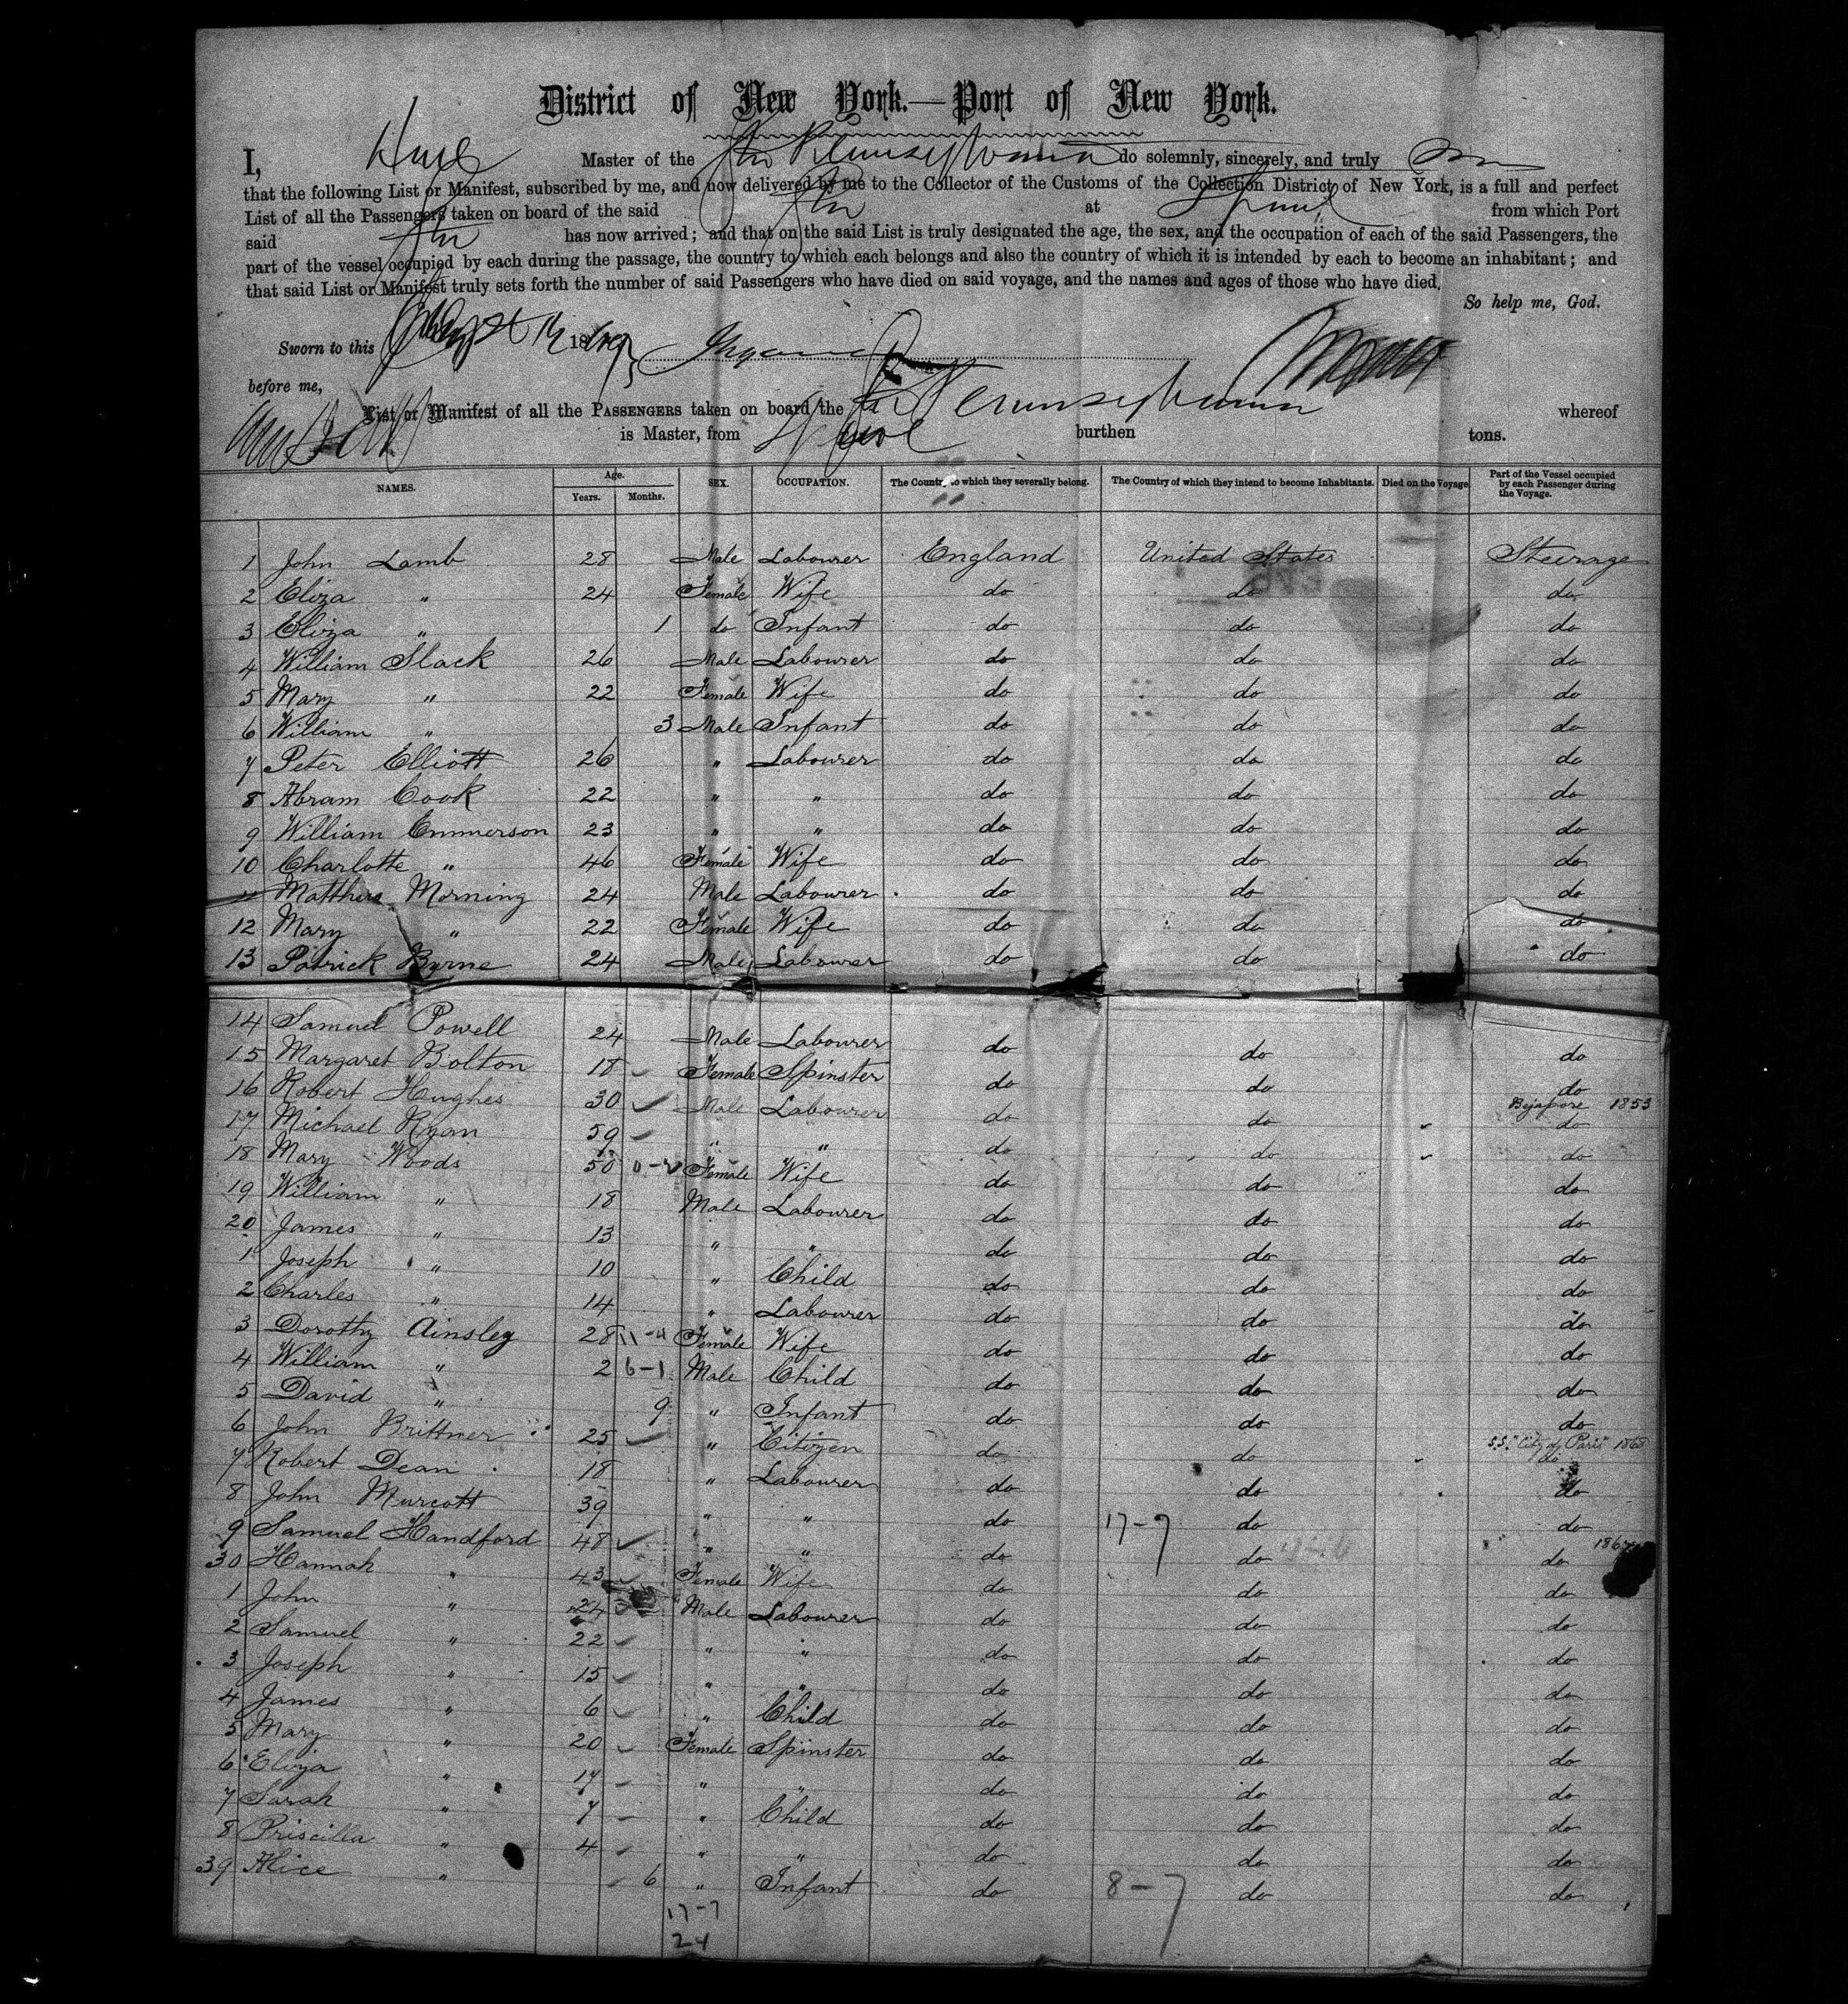 District of New York.—Port of New York.
I, Master of the Str Pennsylvania do solemnly, sincerely, and truly
that the following List or Manifest, subscribed by me, and now delivered by me to the Collector of the Customs of the Collection District of New York, is a full and perfect
List of all the Passengers taken on board of the said Str at from which Port
said Str has now arrived; and that on the said List is truly designated the age, the sex, and the occupation of each of the said Passengers, the
part of the vessel occupied by each during the passage, the country to which each belongs and also the country of which it is intended by each to become an inhabitant; and
that said List or Manifest truly sets forth the number of said Passengers who have died on said voyage, and the names and ages of those who have died.
So help me, God.
Sworn to this 18
before me,
List or Manifest of all the PASSENGERS taken on board the Str Pennsylvania whereof
is Master, from burthen tons.
NAMES. Age. Years. Months. SEX. OCCUPATION. The Country to which they severally belong. The Country of which they intend to become Inhabitants. Died on the Voyage. Part of the Vessel occupied by each Passenger during the Voyage.
1 John Lamb 28 Male Labourer England United States Steerage
2 Eliza " 24 Female Wife do do do
3 Eliza " 1 do Infant do do do
4 William Slack 26 Male Labourer do do do
5 Mary " 22 Female Wife do do do
6 William " 3 Male Infant do do do
7 Peter Elliott 26 " Labourer do do do
8 Abram Cook 22 " " do do do
9 William Emmerson 23 " " do do do
10 Charlotte " 46 Female Wife do do do
11 Matthew Morning 24 Male Labourer do do do
12 Mary " 22 Female Wife do do do
13 Patrick Byrne 24 Male Labourer do do do
14 Samuel Powell 24 Male Labourer do do do
15 Margaret Bolton 18 Female Spinster do do do
16 Robert Hughes 30 Male Labourer do do Bejapore 1853 do
17 Michael Ryan 59 " " do do do
18 Mary Woods 50 0-2 Female Wife do do do
19 William " 18 Male Labourer do do do
20 James " 13 " " do do do
1 Joseph " 10 " Child do do do
2 Charles " 14 " Labourer do do do
3 Dorothy Ainsley 28 11-4 Female Wife do do do
4 William " 2 6-1 Male Child do do do
5 David " 9 " Infant do do do
6 John Brittner 25 " Citizen do do S.S. "City of Paris" 1868 do
7 Robert Dean 18 " Labourer do do do
8 John Murcott 39 " " do 17-7 do do
9 Samuel Handford 48 " " do do do
30 Hannah " 43 Female Wife do do do
1 John " 24 Male Labourer do do do
2 Samuel " 22 " " do do do
3 Joseph " 15 " " do do do
4 James " 6 " Child do do do
5 Mary " 20 Female Spinster do do do
6 Eliza " 17 " " do do do
7 Sarah " 7 " Child do do do
8 Priscilla " 4 " " do do do
39 Alice " 6 " Infant do 8-7 do do
17-7
24